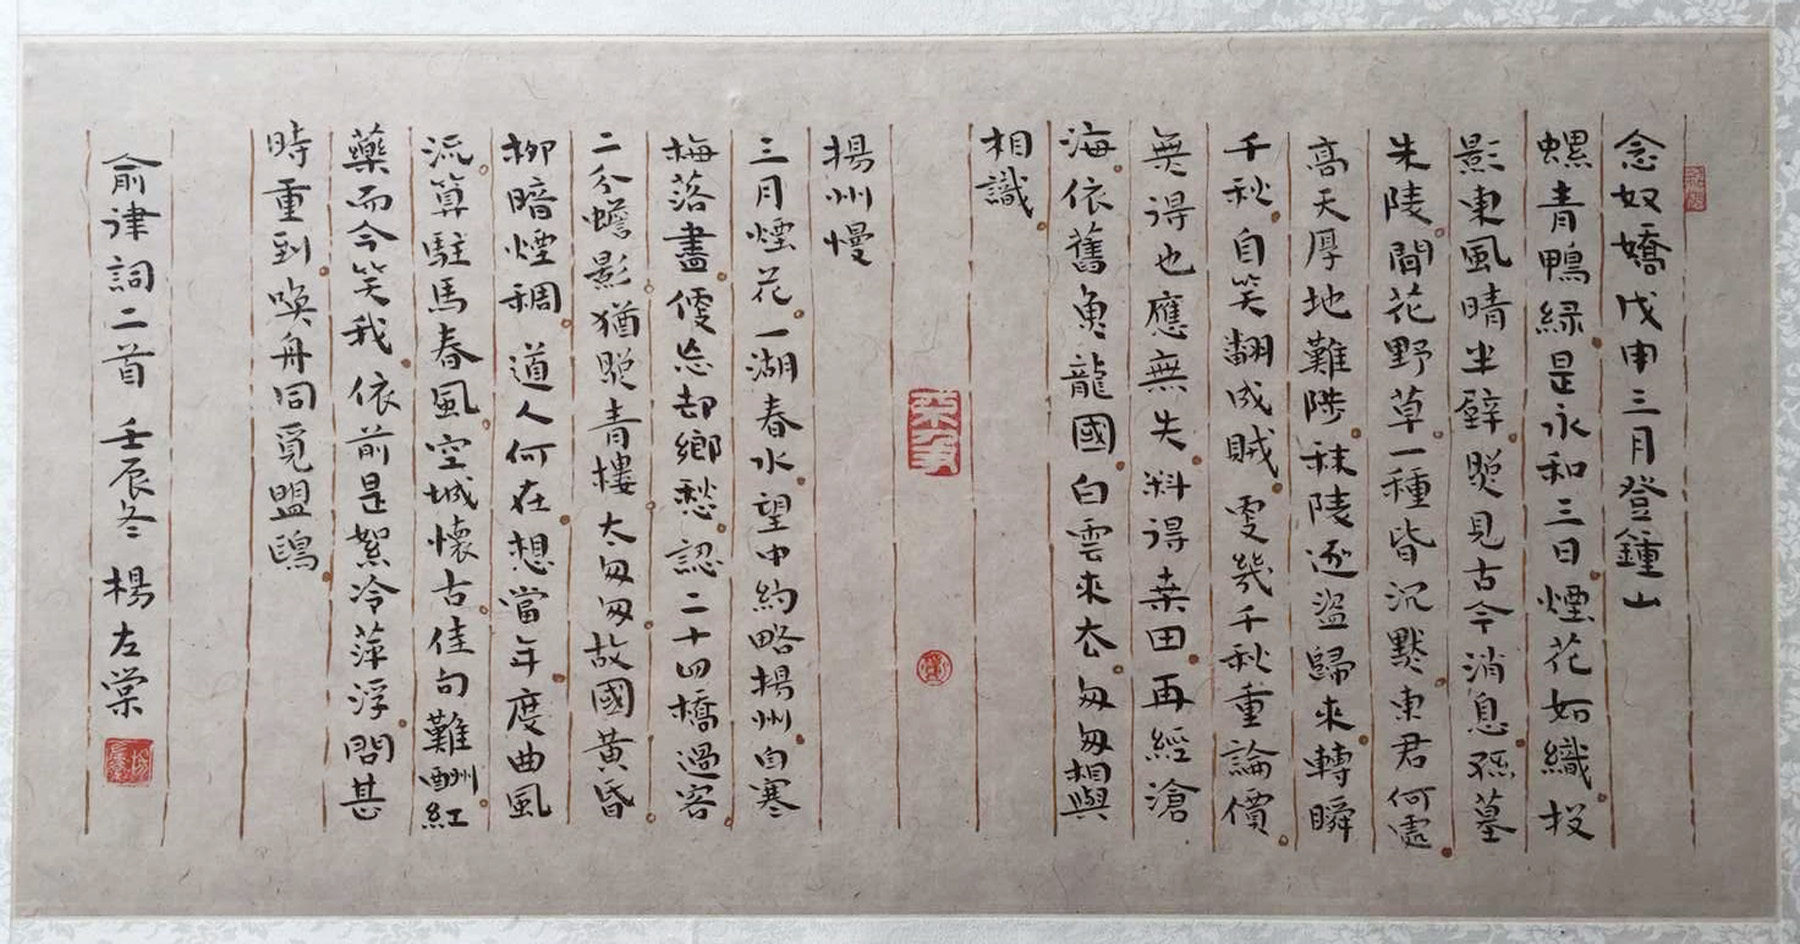 念奴嬌戊申三月登鍾山
螺青鴨緑是永和三日煙花如織投
影東風晴半壁照見古今消息孫墓
朱陵間花野草一種皆沉默東君何處
高天厚地難陟秣陵逐盜歸來轉瞬
千秋自笑翻成賊更幾千秋重論價
無得也應無失料得桒田再經滄
海依舊魚龍國白雲來去匆匆相與
相識
揚州慢
三月煙花一湖春水望中約略揚州自寒
梅落盡便忘却鄉愁認二十四橋過客
二分蟾影猶照青樓太匆匆故國黃昏
柳暗煙稠道人何在想當年度曲風
流算駐馬春風空城懷古佳句難酬紅
藥而今笑我依前是絮冷萍浮問甚
時重到喚舟同覓盟鷗
俞律詞二首 壬辰冬 楊左棠